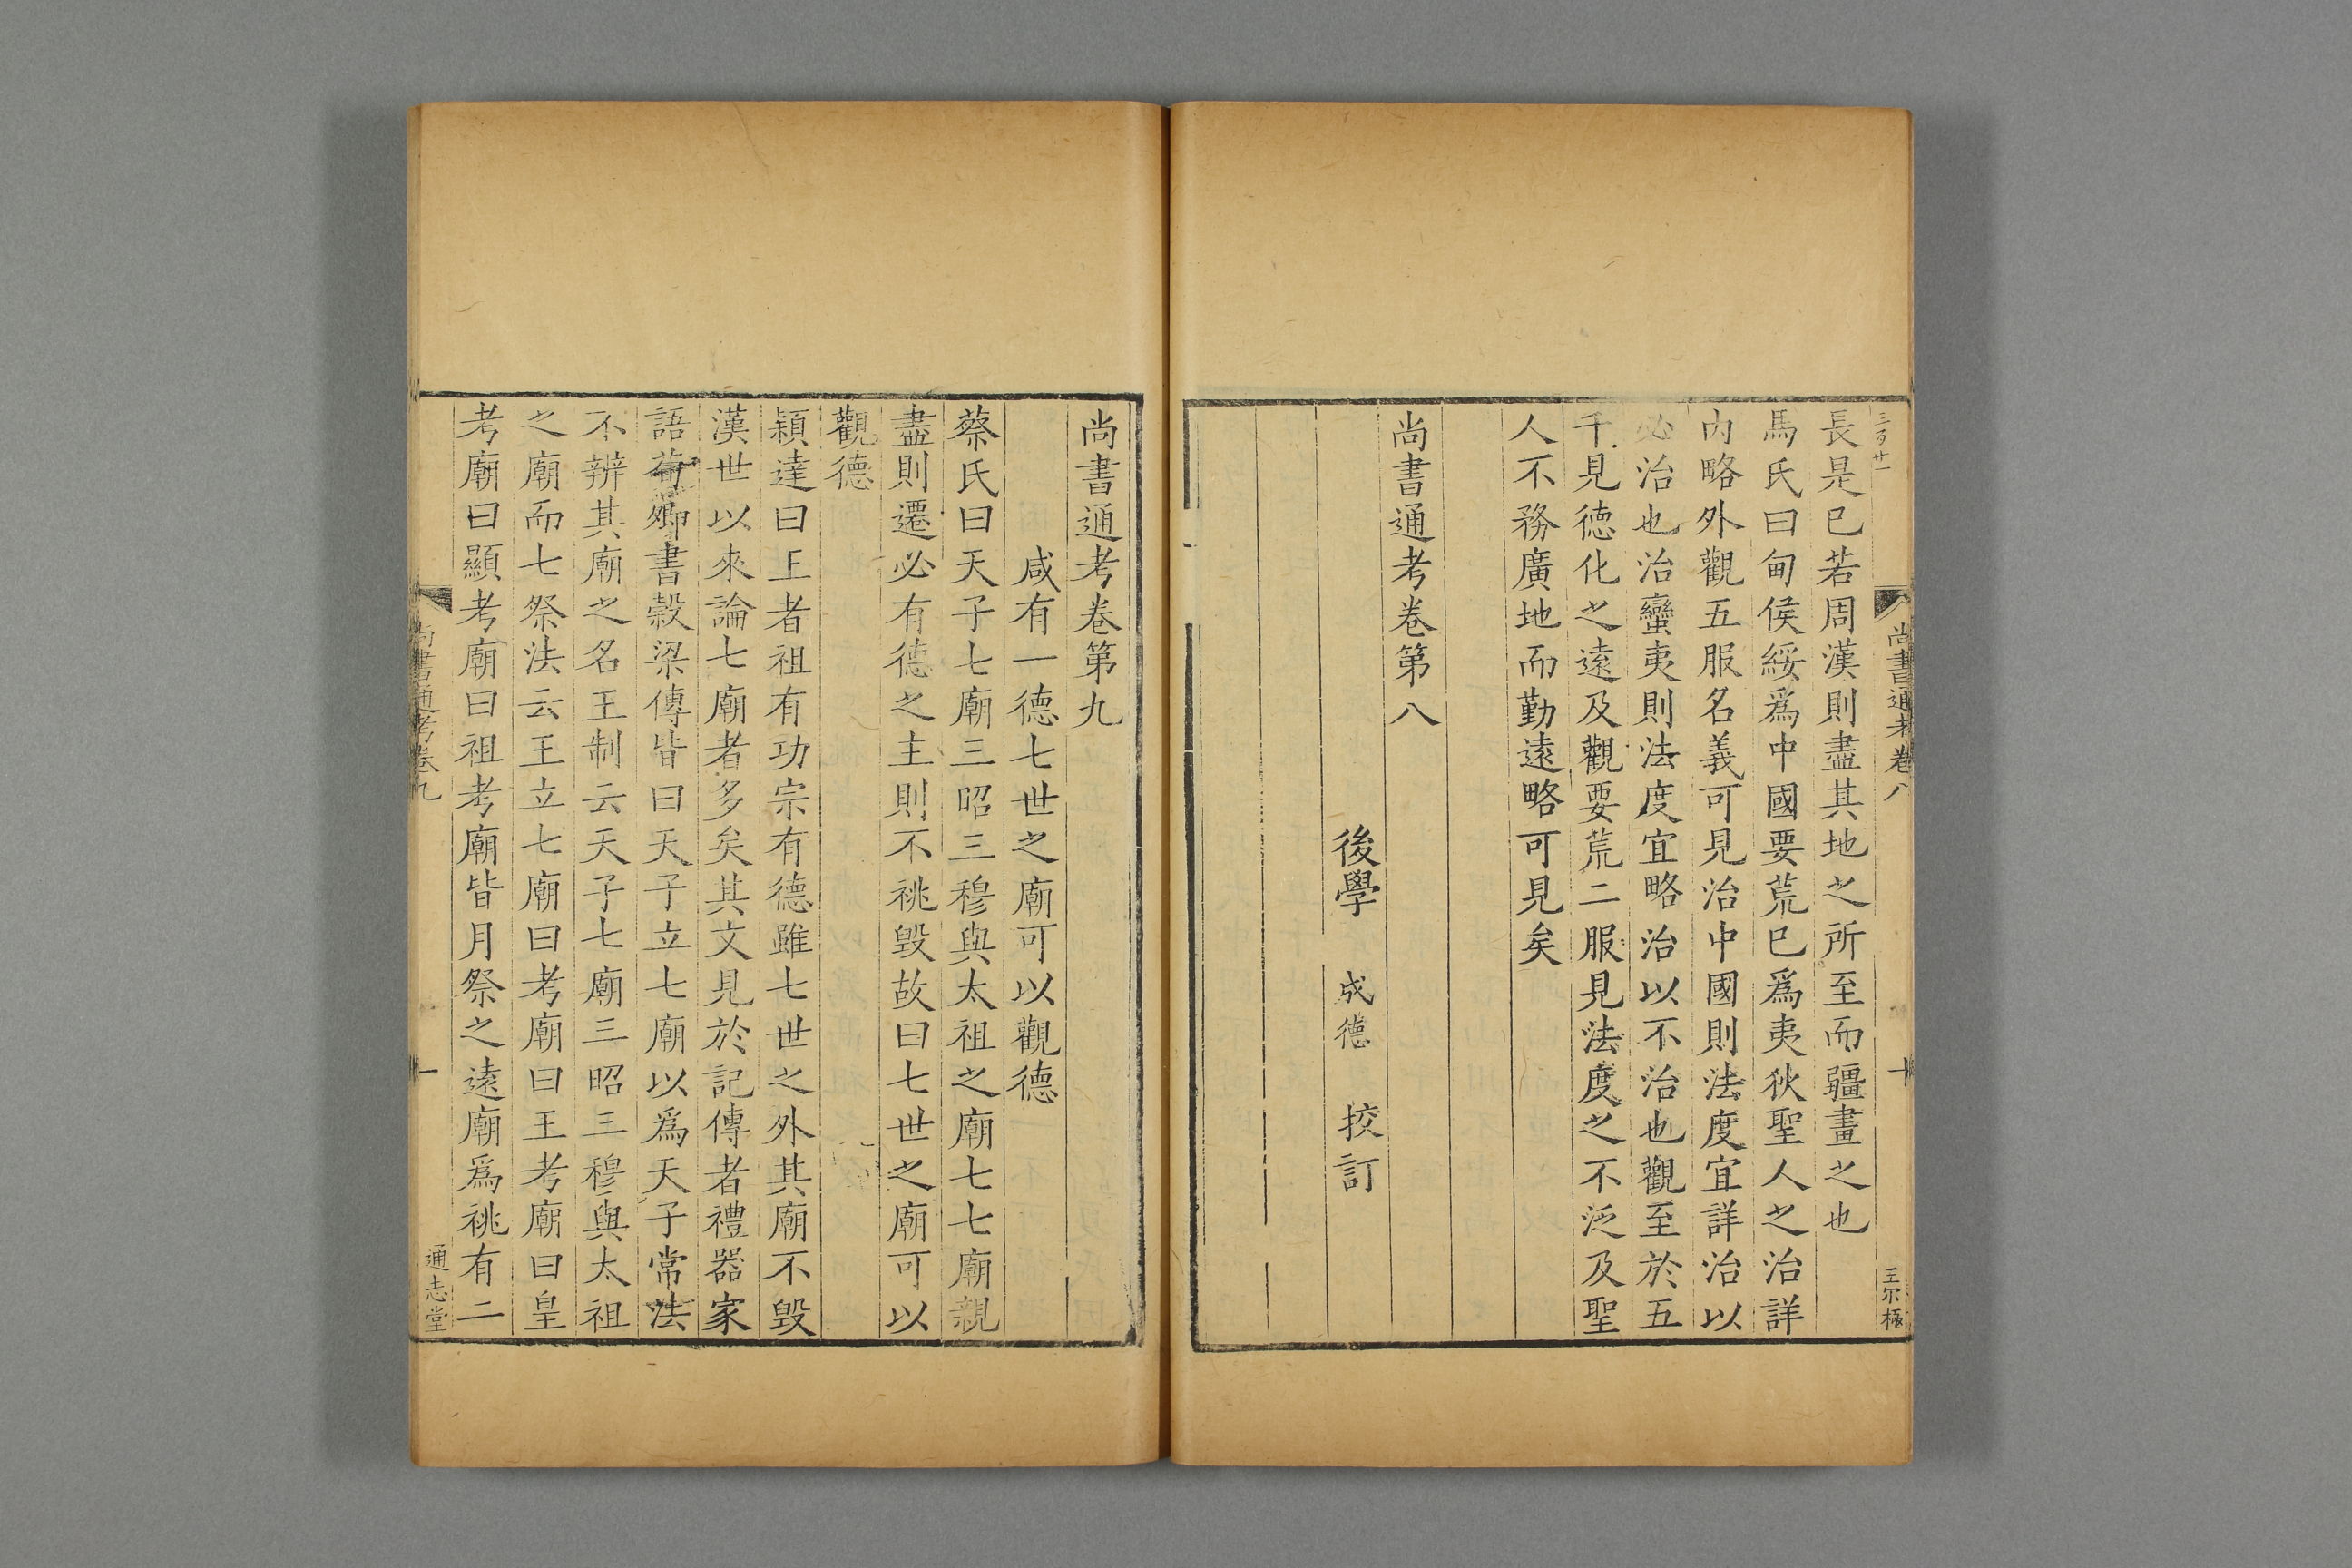 三百廿一
長是已若周漢則盡其地之所至而疆畫之也
馬氏曰甸侯綏爲中國要荒已爲夷狄聖人之治詳
内略外觀五服名義可見治中國則法度宜詳治以
必治也治蠻夷則法度宜略治以不治也觀至於五
千見德化之遠及觀要荒二服見法度之不泛及聖
人不務廣地而勤遠略可見矣
尚書通考卷第八
後學 成德 挍訂
尚書通考卷八
十
王尔極
尚書通考卷第九
咸有一德七世之廟可以觀德
蔡氏曰天子七廟三昭三穆與太祖之廟七七廟親
盡則遷必有德之主則不祧毀故曰七世之廟可以
觀德
穎達曰上者祖有功宗有德雖七世之外其廟不毀
漢世以來論七廟者多矣其文見於記傳者禮器家
語荀卿書榖梁傳皆曰天子立七廟以爲天子常法
不辨其廟之名王制云天子七廟三昭三穆與太祖
之廟而七祭法云王立七廟曰考廟曰王考廟曰皇
考廟曰顯考廟曰祖考廟皆月祭之遠廟爲祧有二
尚書通考卷九
一
通志堂